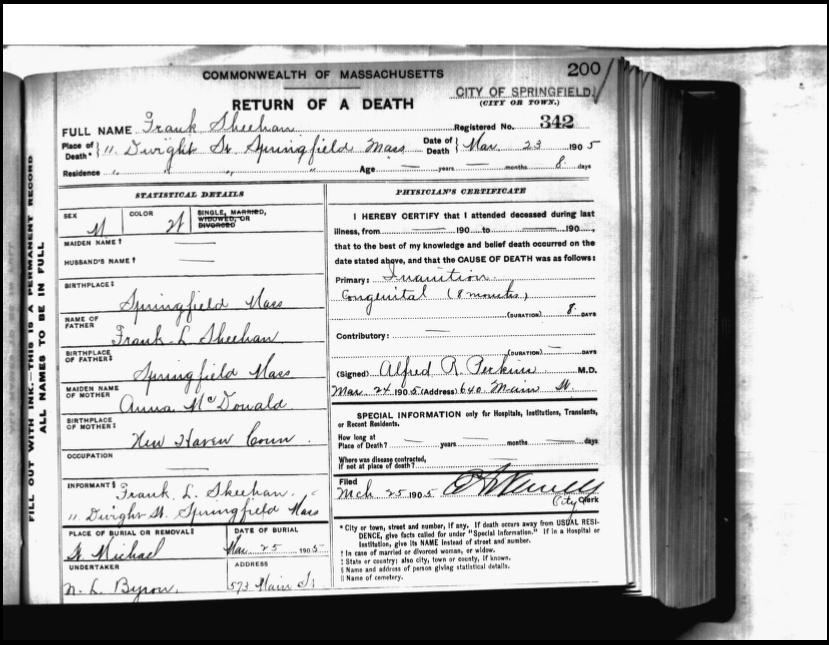 200
COMMONWEALTH OF MASSACHUSETTS
CITY OF SPRINGFIELD
(CITY OR TOWN.)
RETURN OF A DEATH
FULL NAME Frank Sheehan Registered No. 342
Place of Death* } 11 Dwight St. Springfield Mass Date of Death } Mar 23 1905
Residence " " " Age — years — months 8 days
FILL OUT WITH INK.—THIS IS A PERMANENT RECORD
ALL NAMES TO BE IN FULL
STATISTICAL DETAILS
SEX M COLOR W SINGLE, MARRIED, WIDOWED, OR DIVORCED
MAIDEN NAME † —
HUSBAND'S NAME † —
BIRTHPLACE ‡ Springfield Mass
NAME OF FATHER Frank L Sheehan
BIRTHPLACE OF FATHER ‡ Springfield Mass
MAIDEN NAME OF MOTHER Anna McDonald
BIRTHPLACE OF MOTHER ‡ New Haven Conn.
OCCUPATION —
INFORMANT § Frank L. Sheehan.
11 Dwight St. Springfield Mass
PLACE OF BURIAL OR REMOVAL || St Michael
DATE OF BURIAL Mar 25 1905
UNDERTAKER N. L. Byron.
ADDRESS 573 Main St
PHYSICIAN'S CERTIFICATE
I HEREBY CERTIFY that I attended deceased during last
illness, from — 190 to — 190,
that to the best of my knowledge and belief death occurred on the
date stated above, and that the CAUSE OF DEATH was as follows:
Primary: Inanition
Congenital (8 months)
(DURATION) 8 DAYS
Contributory: —
(DURATION) — DAYS
(Signed) Alfred R. Perkins M.D.
Mar. 24 1905 (Address) 640 Main St.
SPECIAL INFORMATION only for Hospitals, Institutions, Transients,
or Recent Residents.
How long at Place of Death? — years — months — days
Where was disease contracted, if not at place of death? —
Filed
Mch 25 1905
City Clerk
* City or town, street and number, if any. If death occurs away from USUAL RESI-
DENCE, give facts called for under "Special Information." If in a Hospital or
Institution, give its NAME instead of street and number.
† In case of married or divorced woman, or widow.
‡ State or country; also city, town or county, if known.
§ Name and address of person giving statistical details.
|| Name of cemetery.